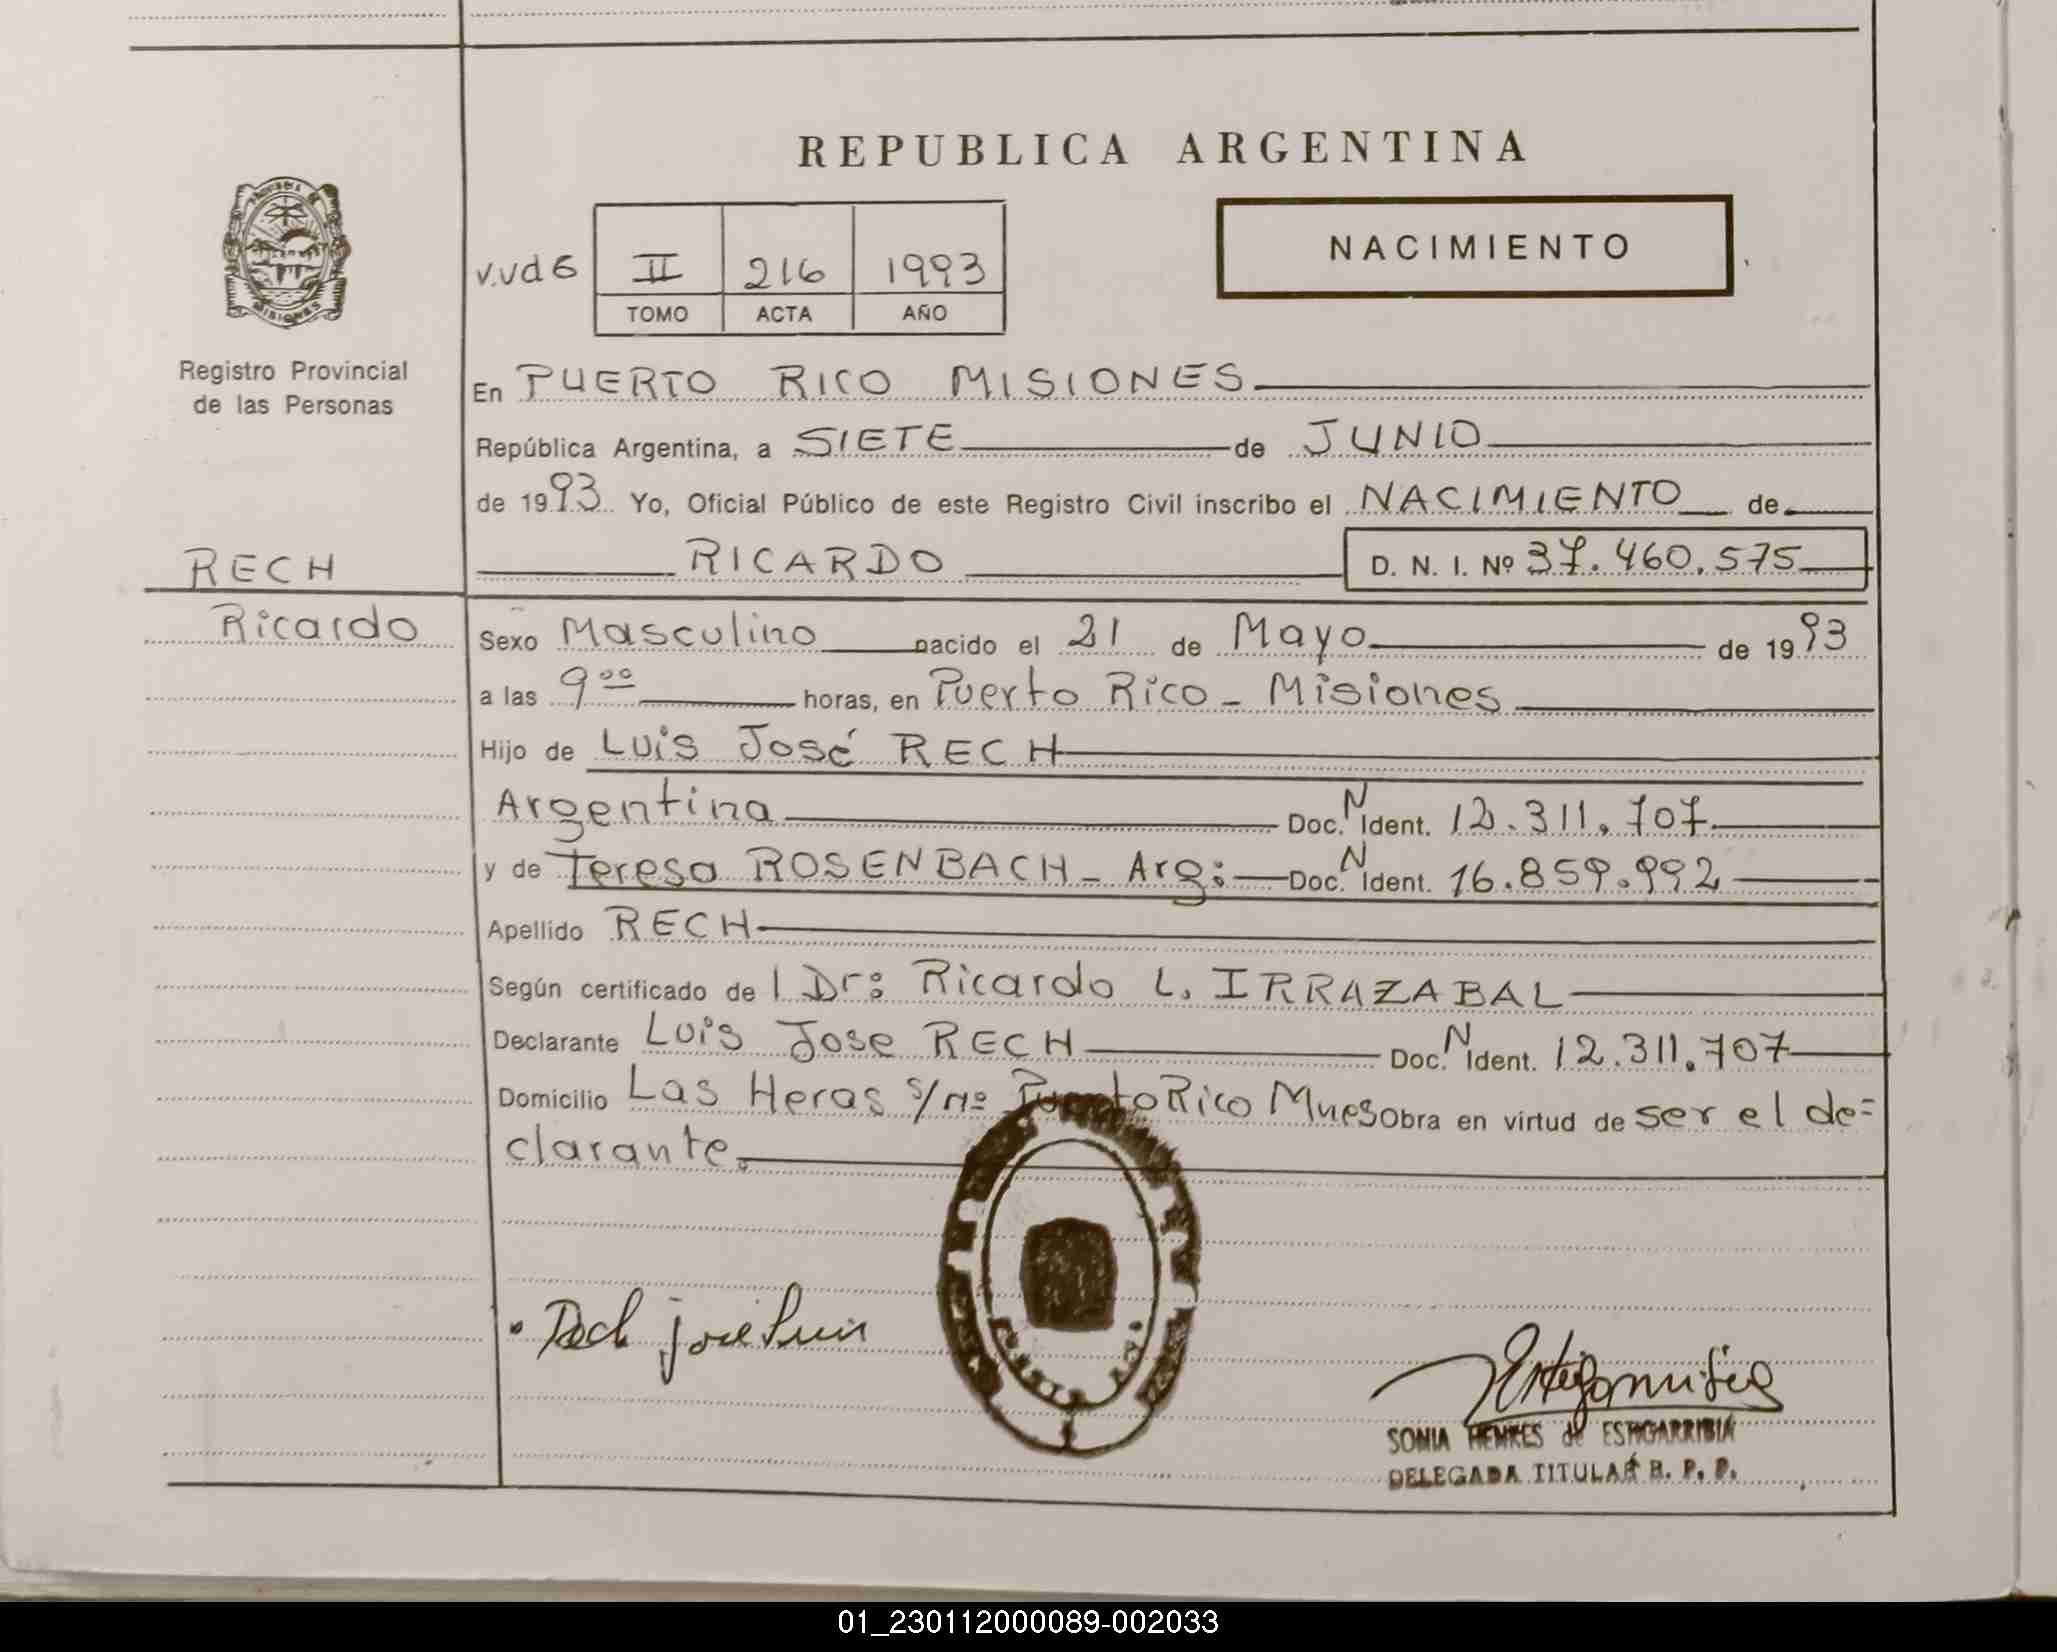 REPUBLICA ARGENTINA
NACIMIENTO
v.vd6 II 216 1993
TOMO ACTA AÑO
MISIONES
Registro Provincial
de las Personas
En PUERTO RICO MISIONES
República Argentina, a SIETE de JUNIO
de 1993. Yo, Oficial Público de este Registro Civil inscribo el NACIMIENTO de
RECH
RICARDO D. N. I. Nº 37.460.575
Ricardo
Sexo Masculino nacido el 21 de Mayo de 1993
a las 9ºº horas, en Puerto Rico - Misiones
Hijo de Luis José RECH
Argentina Doc. N Ident. 12.311.707
y de Teresa ROSENBACH - Arg: Doc. N Ident. 16.859.992
Apellido RECH
Según certificado de l Dr: Ricardo L. IRRAZABAL
Declarante Luis Jose RECH Doc. N Ident. 12.311.707
Domicilio Las Heras s/nº Puerto Rico Mnes Obra en virtud de ser el de=
clarante.
Rech jose Luis
SONIA HENKES de ESTIGARRIBIA
DELEGADA TITULAR R. P. P.
01_230112000089-002033